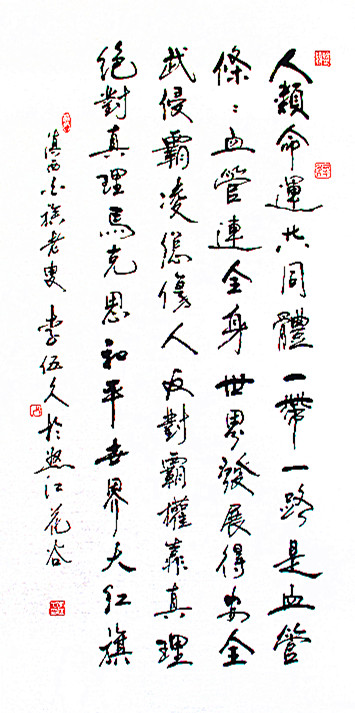 人類命運共同體一帶一路是血管
條〻血管連全身世界發展得安全
武侵霸凌傷人反對霸權靠真理
絕對真理馬克思和平世界大紅旗
滇西族老叟李伍久於怒江花谷